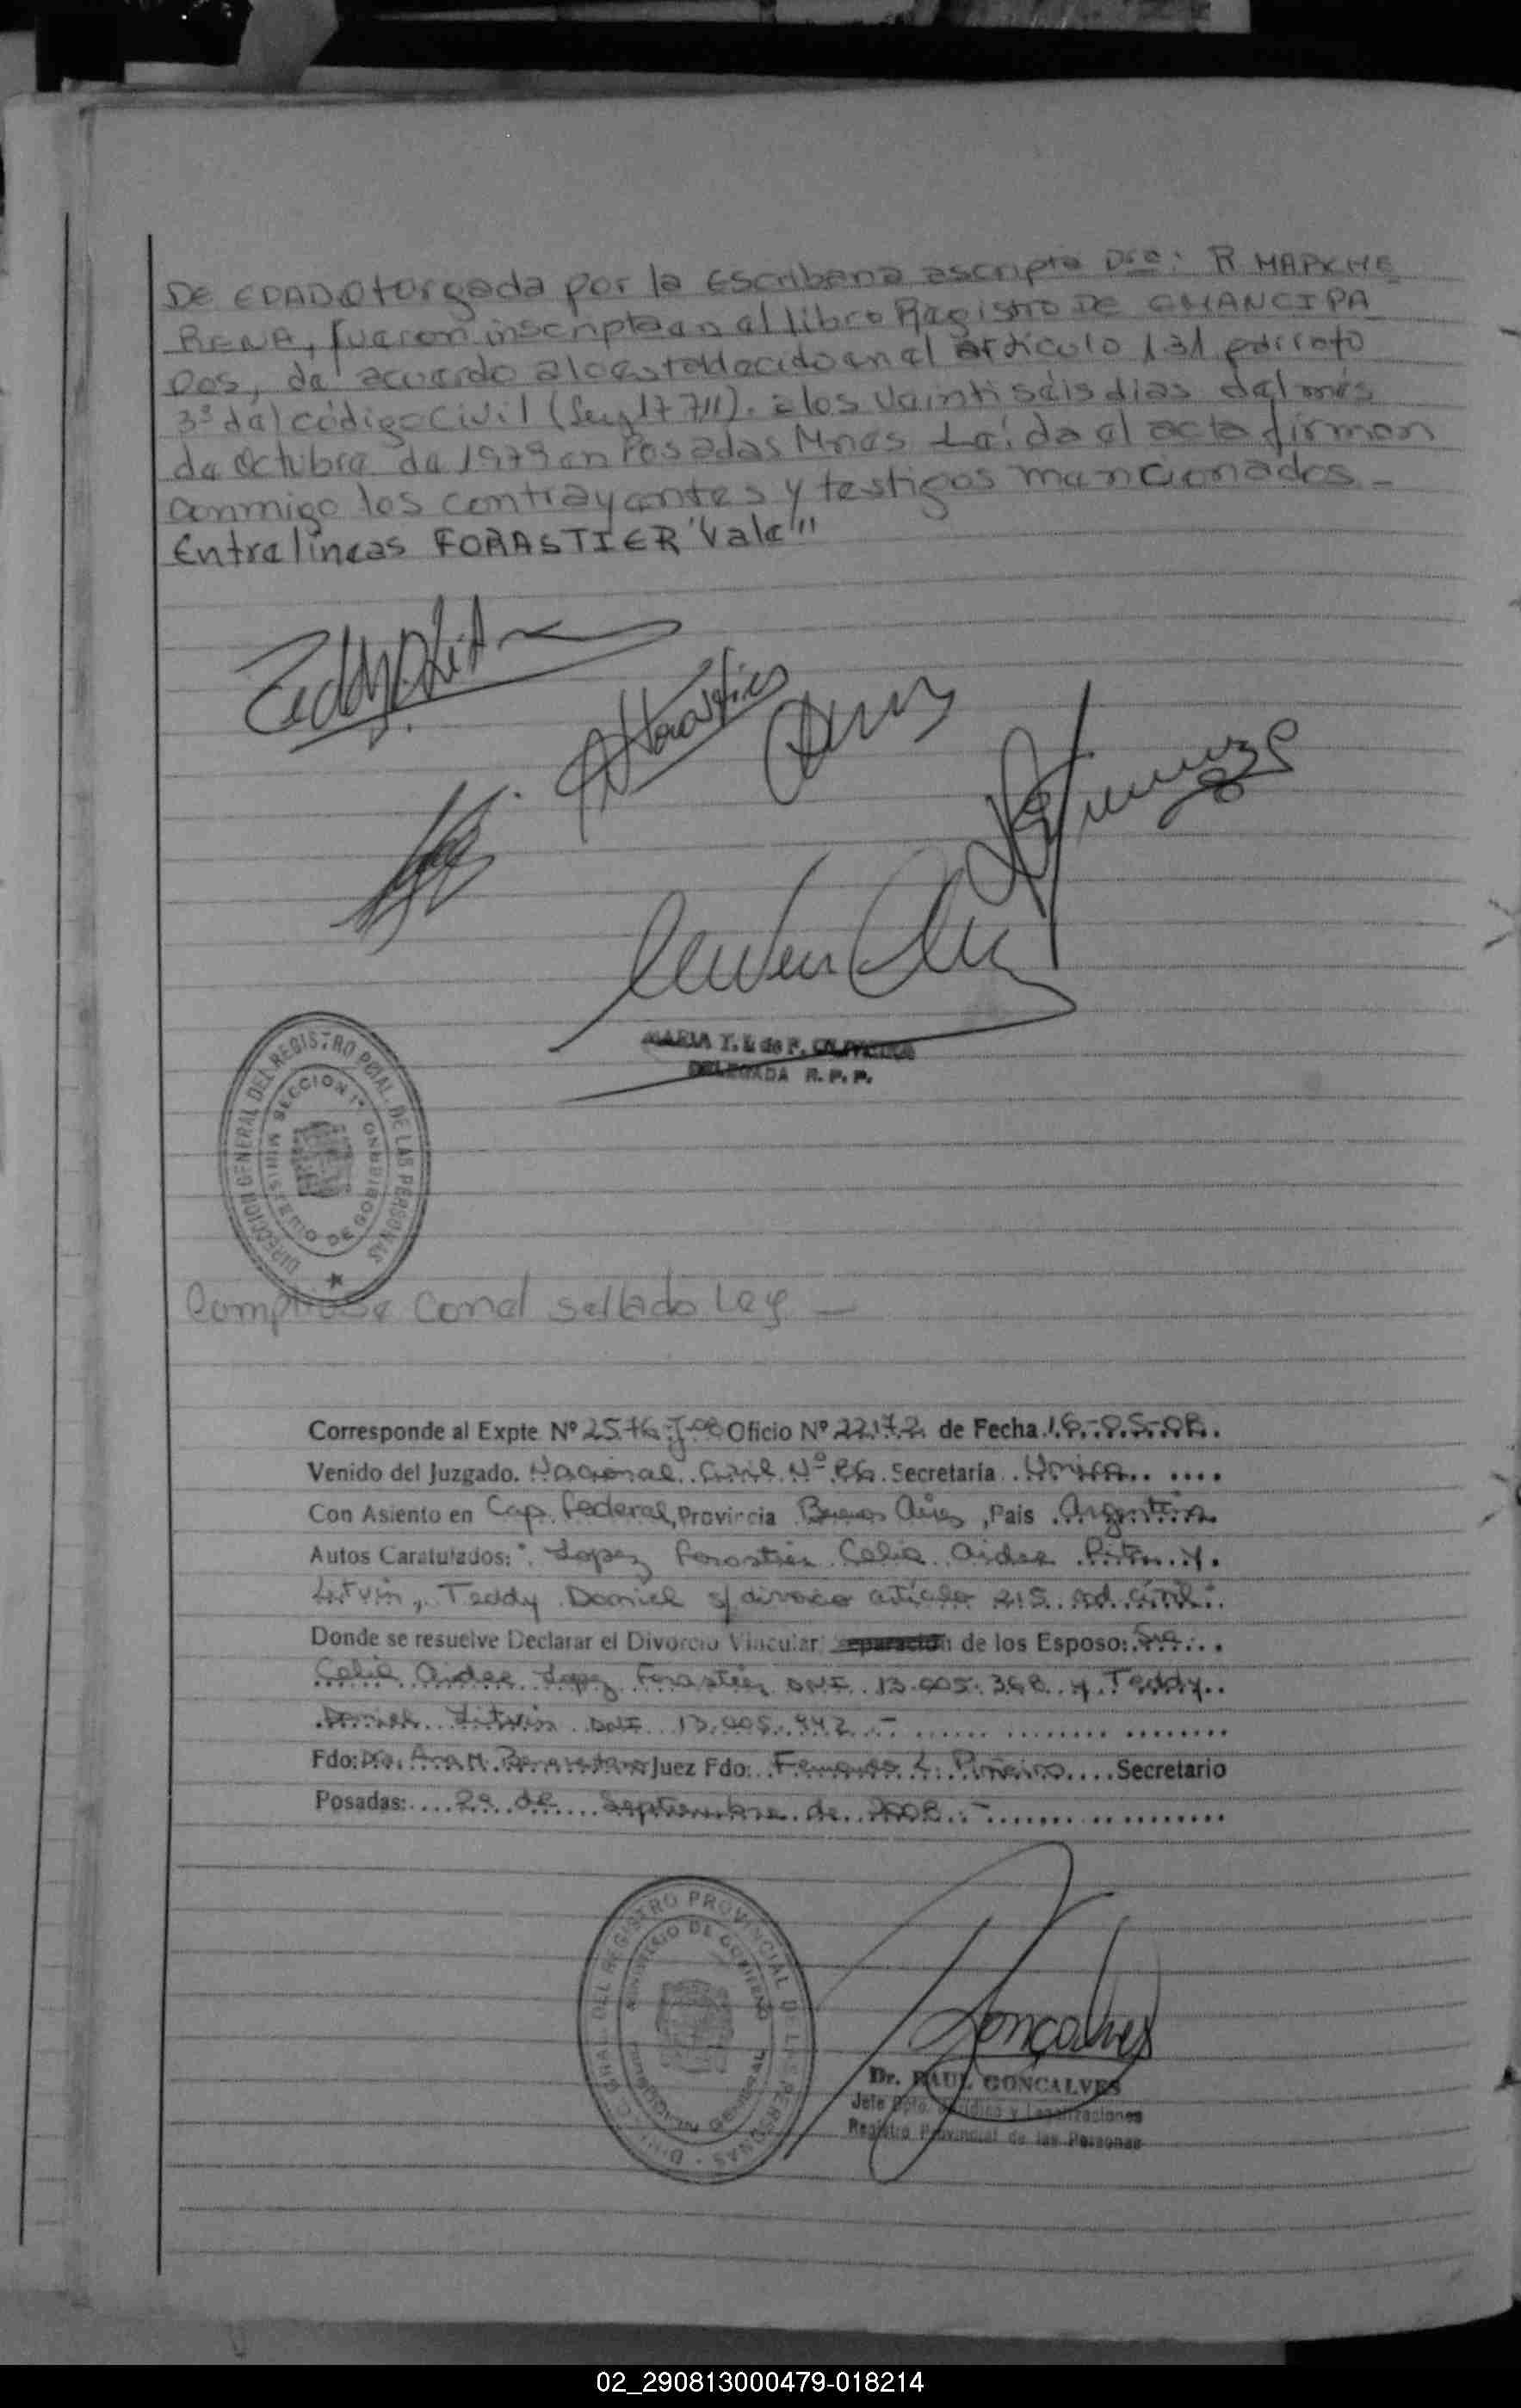 DE EDAD Otorgada por la Escribana ascripta Dra: R MAPKHE
RENA, fueron inscriptas en el libro Registro DE EMANCIPA
DOS, de acuerdo a lo establecido en el artículo 131 párrafo
3º del código Civil (Ley 17 711). a los Veintiséis días del mes
de Octubre de 1979 en Posadas Mnes Leída el acta firman
conmigo los contrayentes y testigos mencionados -
Entrelíneas FORASTIER "Vale"
MARIA T. L de F. OLIVEIRA
DELEGADA R. P. P.
DIRECCION GENERAL DEL REGISTRO PCIAL. DE LAS PERSONAS
SECCION 1ª MINISTERIO DE GOBIERNO
Compulse Con el sellado Ley -
Corresponde al Expte Nº 2576-J-08 Oficio Nº 22172 de Fecha 16-05-08.
Venido del Juzgado. Nacional Civil Nº 86 Secretaría Unica
Con Asiento en Cap. Federal, Provincia Buenos Aires, País Argentina
Autos Caratulados: " Lopez Forastier Celia Aidee y
Litvin, Teddy Daniel s/ divorcio artículo 215 cod. civil
Donde se resuelve Declarar el Divorcio Vincular de los Esposo: Sra
Celia Aidee Lopez Forastier DNI 13.005.368 y Teddy
Daniel Litvin DNI 13.005.442 -
Fdo: Dra. Ana M. Juez Fdo: Fernando L. Piñeiro Secretario
Posadas: 29 de Septiembre de 2008 -
REGISTRO PROVINCIAL DE LAS PERSONAS
MINISTERIO DE GOBIERNO
Gonçalves
Dr. RAUL GONCALVES
Jefe Dpto. Jurídico y Legalizaciones
Registro Provincial de las Personas
02_290813000479-018214